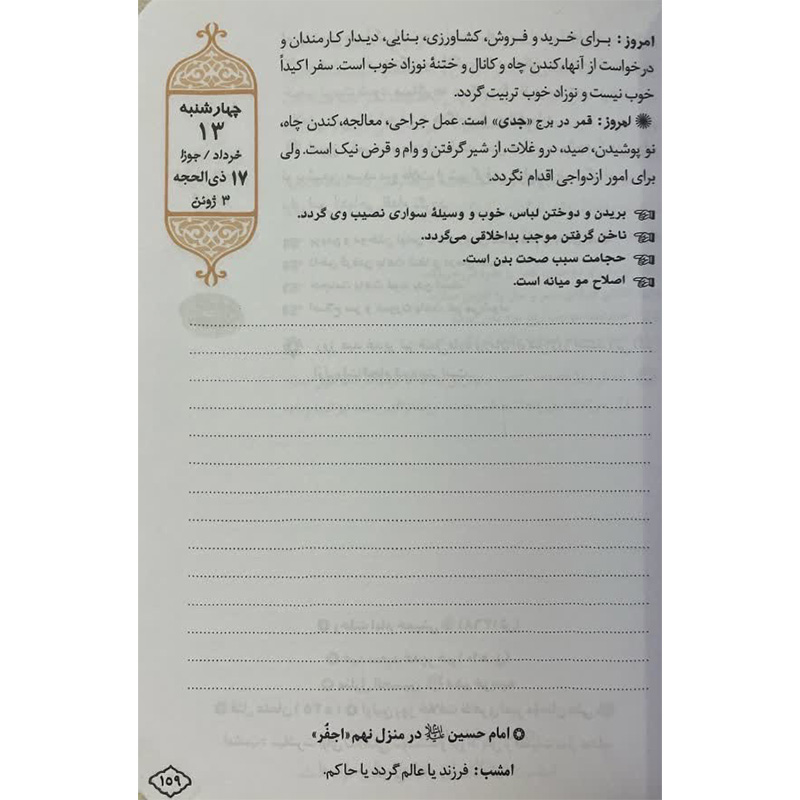 امروز: برای خرید و فروش، کشاورزی، بنایی، دیدار کارمندان و
درخواست از آنها، کندن چاه و کانال و ختنهٔ نوزاد خوب است. سفر اکیداً
خوب نیست و نوزاد خوب تربیت گردد.
امروز: قمر در برج «جدی» است. عمل جراحی، معالجه، کندن چاه،
نو پوشیدن، صید، درو غلات، از شیر گرفتن و وام و قرض نیک است. ولی
برای امور ازدواجی اقدام نگردد.
بریدن و دوختن لباس، خوب و وسیلهٔ سواری نصیب وی گردد.
ناخن گرفتن موجب بداخلاقی می‌گردد.
حجامت سبب صحت بدن است.
اصلاح مو میانه است.
چهارشنبه
۱۳
خرداد / جوزا
۱۷ ذی‌الحجه
۳ ژوئن
امام حسین علیه‌السلام در منزل نهم «اجفُر»
امشب: فرزند یا عالم گردد یا حاکم.
۱۵۹